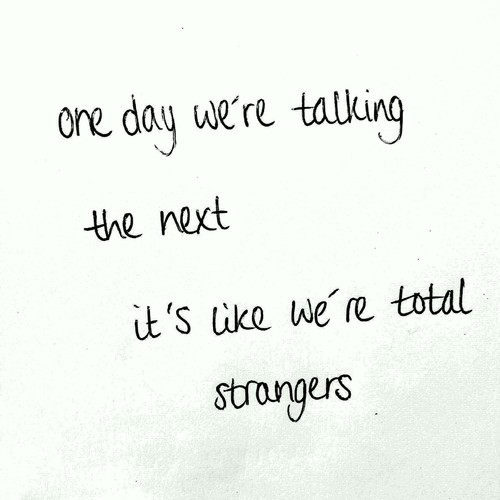 one day we're talking
the next
it's like we're total
strangers